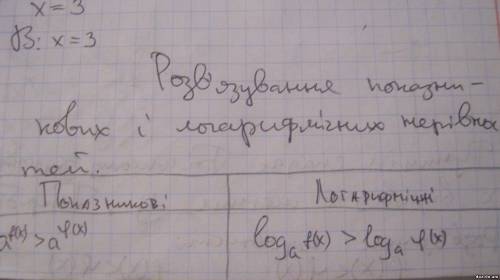 x=3
В: x=3
Розв'язування показни-
кових і логарифмічних нерівнос
тей.
Показникові
Логарифмічні
a^f(x) > a^φ(x)
log_a f(x) > log_a φ(x)